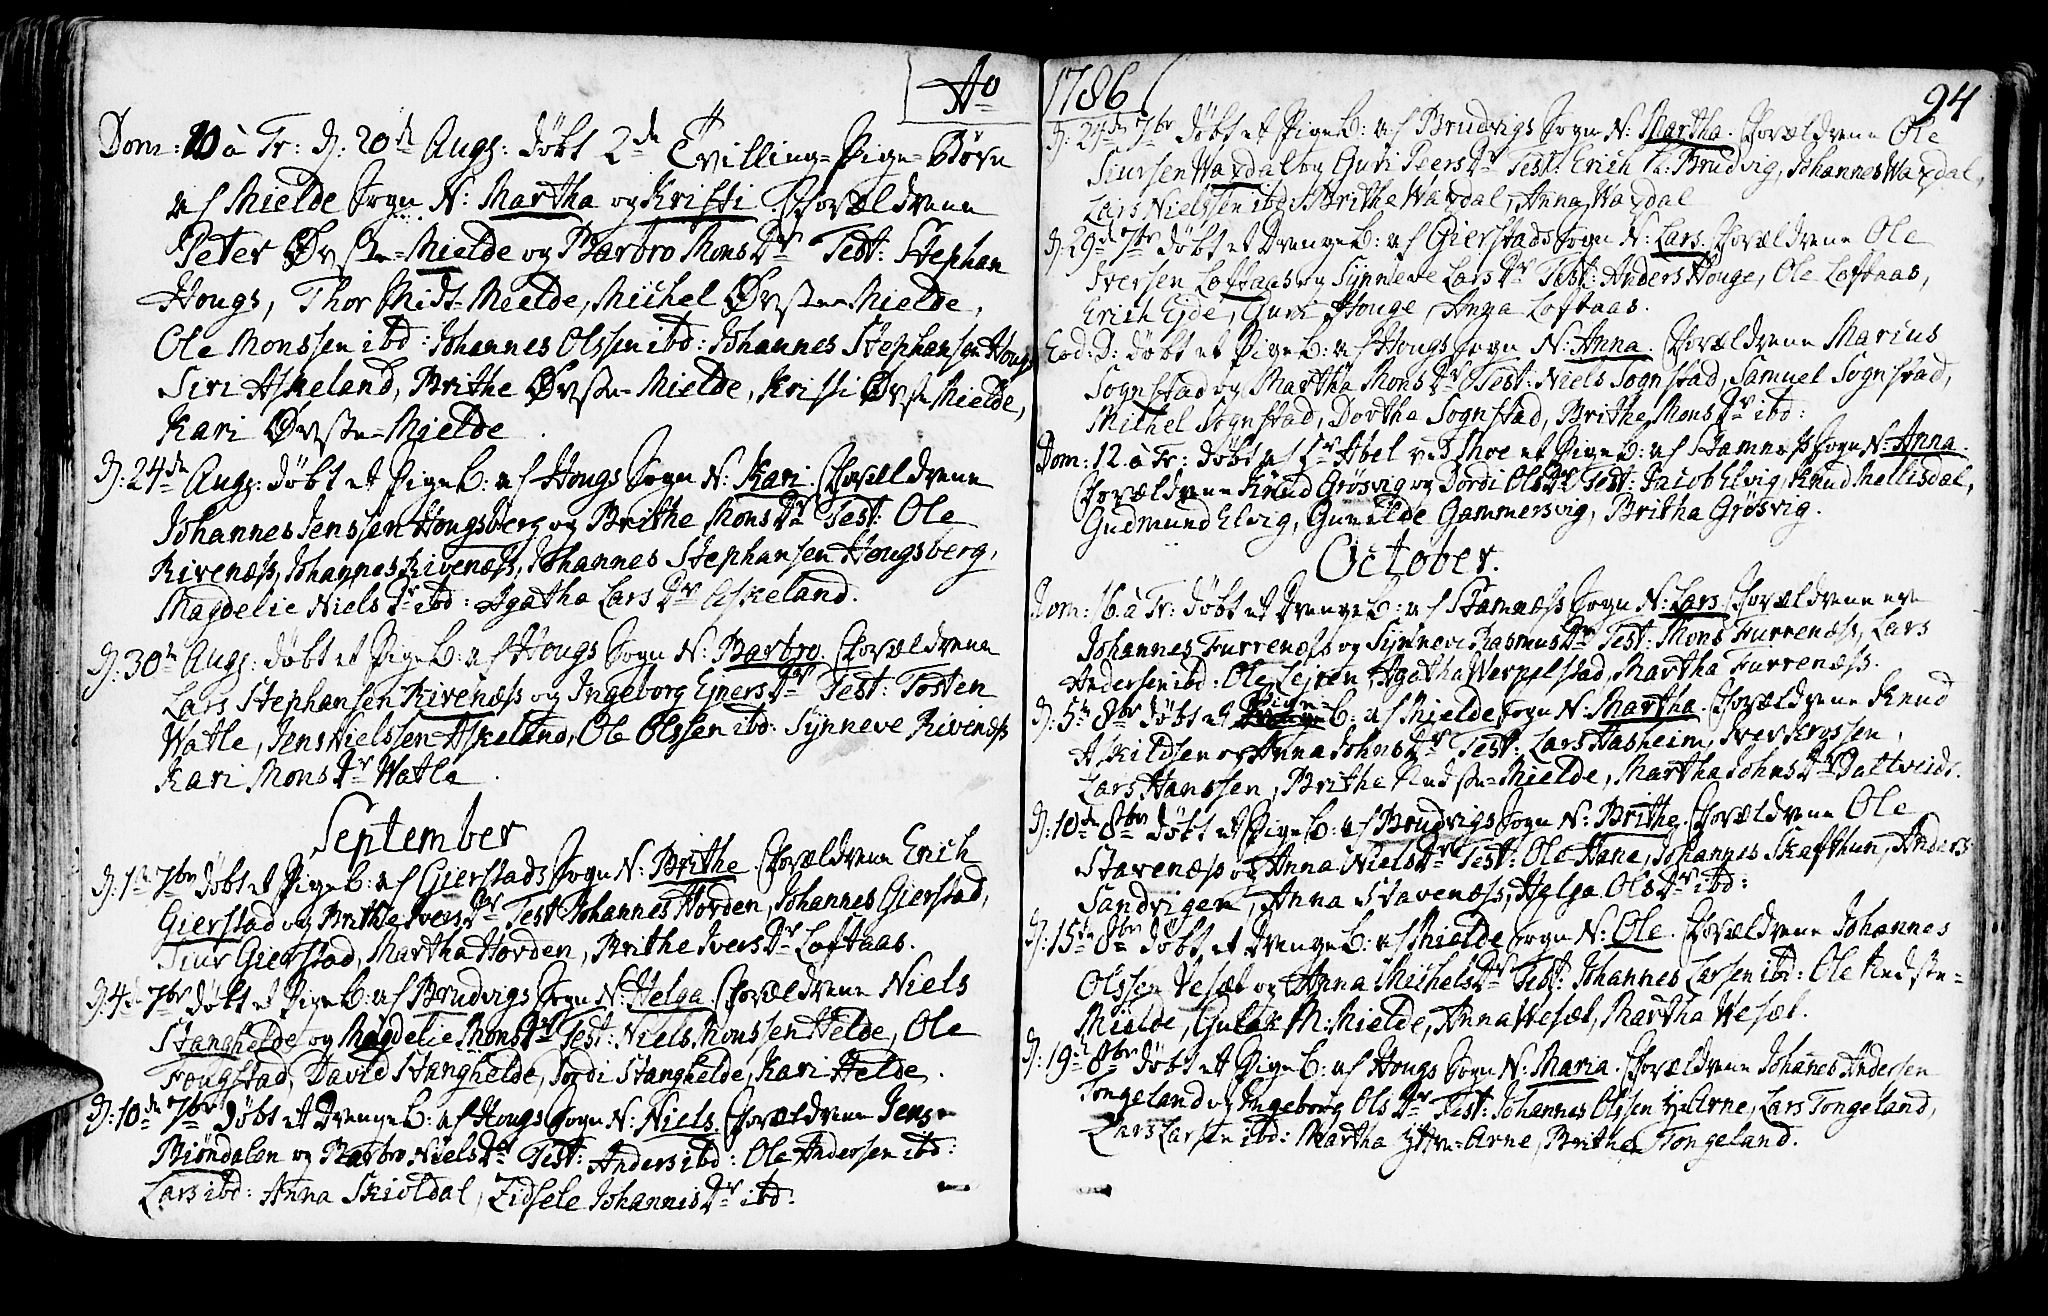 Ao
Dom: 10 à Tr: D: 20de Aug: døbt 2de Tvilling-Pige-Børn
af Mielde Sogn N: Martha og Kristi. Forældrene
Peter Øvste-Mielde og Barbro MonsDr Test: Stephan
Hougs, Thor Midt-Mielde, Michel Øvste-Mielde,
Ole Monssen ibd: Johannes Olssen ibd: Johannes Stephansen Houg
Siri Askeland, Brithe Øvste-Mielde, Kristi Øvste Mielde,
Kari Øvste-Mielde.
D: 24de Aug: døbt et Pige B: af Hougs Sogn N: Kari. Forældrene
Johannes Jenssen Hougsberg og Brithe MonsDr Test: Ole
Rivenæss, Johannes Rivenæss, Johannes Stephansen Hougsberg,
Magdelie NielsDr ibd: Agatha LarsDr Askeland.
D: 30te Aug: døbt et Pige B: af Hougs Sogn N: Barbro. Forældrene
Lars Stephansen Rivenæss og Ingeborg EjnersDr Test: Tosten
Watle, Jens Nielssen Askeland, Ole Olssen ibd: Synneve Rivenæss
Kari MonsDr Watle.
September
D: 1te 7br døbt et Pige B: af Gierstads Sogn N: Brithe. Forældrene Erich
Gierstad og Brithe IversDr Test Johannes Horden, Johannes Gierstad,
Siur Gierstad, Martha Horden, Brithe IversDr Loftaas.
D: 4de 7br døbt et Pige B: af Brudvigs Sogn N: Helga. Forældrene Niels
Stanghelde og Magdelie MonsDr Test: Niels Monssen Helde, Ole
Fougstad, David Stanghelde, Jordi Stanghelde, Kari Helde.
D: 10de 7br døbt et Drenge B: af Hougs Sogn N: Niels. Forældrene Jens
Biøndalen og Barbro NielsDr Test: Anders ibd: Ole Andersen ibd:
Lars ibd: Anna Skioldal, Zidsele JohannisDr ibd:
1786
94
D: 24de 7br døbt et Pige B: af Brudvigs Sogn N: Martha. Forældrene Ole
Siursen Waxdal og Guri PeersDr Test: Erich Brudvig, Johannes Waxdal,
Lars Nielssen ibd: Brithe Waxdal, Anna Waxdal
D: 29de 7br døbt et Drenge B: af Gierstads Sogn N: Lars. Forældrene Ole
Iversen Loftaas og Synneve LarsDr Test: Anders Houge, Ole Loftaas,
Erich Ejde, Guri Houge, Anna Loftaas.
Eod: D: døbt et Pige B: af Hougs Sogn N: Anna. Forældrene Marius
Sognstad og Martha MonsDr Test: Niels Sognstad, Samuel Sognstad,
Michel Sognstad, Dorthe Sognstad, Brithe MonsDr ibd:
Dom: 12 à Tr: døbt af Hr Abel ved Moe et Pige B: af Stamnæss Sogn N: Anna.
Forældrene Knud Grøsvig og Dordi OlsDr Test: Jacob Elvig, Knud Mellisdal,
Gudmund Elvig, Gunilde Gammersvig, Britha Grøsvig.
October.
Dom: 16 à Tr: døbt et Drenge B: af Stamnæss Sogn N: Lars. Forældrene ere
Johannes Furrenæss og Synnevi RasmusDr Test: Mons Furrenæss, Lars
Andersen ibd: Ole Lejren, Agatha Weppelstad, Martha Furrenæss.
D: 5te 8br døbt et Pige B: af Mielde Sogn N: Martha. Forældrene Knud
Askildsen og Anna JohnsDr Test: Lars Hasheim, Iver
Lars Hanssen, Brithe Nedste-Mielde, Martha JohnsDr Daltveidt.
D: 10de 8br døbt et Pige B: af Brudvigs Sogn N: Brithe. Forældrene Ole
Stavenæss og Anna NielsDr Test: Ole Hane, Johannes Skafthun, Anders
Sandvigen, Anna Stavenæss, Helga OlsDr ibd:
D: 15de 8br døbt et Drenge B: af Mielde Sogn N: Ole. Forældrene Johannes
Olssen Vesæt og Anna MichelsDr Test: Johannes Larsen ibd: Ole Nedste-
Mielde, Gulak M: Mielde, Anna Wesæt, Martha Wesæt.
D: 19de 8br døbt et Pige B: af Hougs Sogn N: Maria. Forældrene Johanes Andersen
Tongeland og Ingeborg OlsDr Test: Johannes Olssen Arne, Lars Tongeland,
Lars Larsen ibd: Martha Arne, Brithe Tongeland.